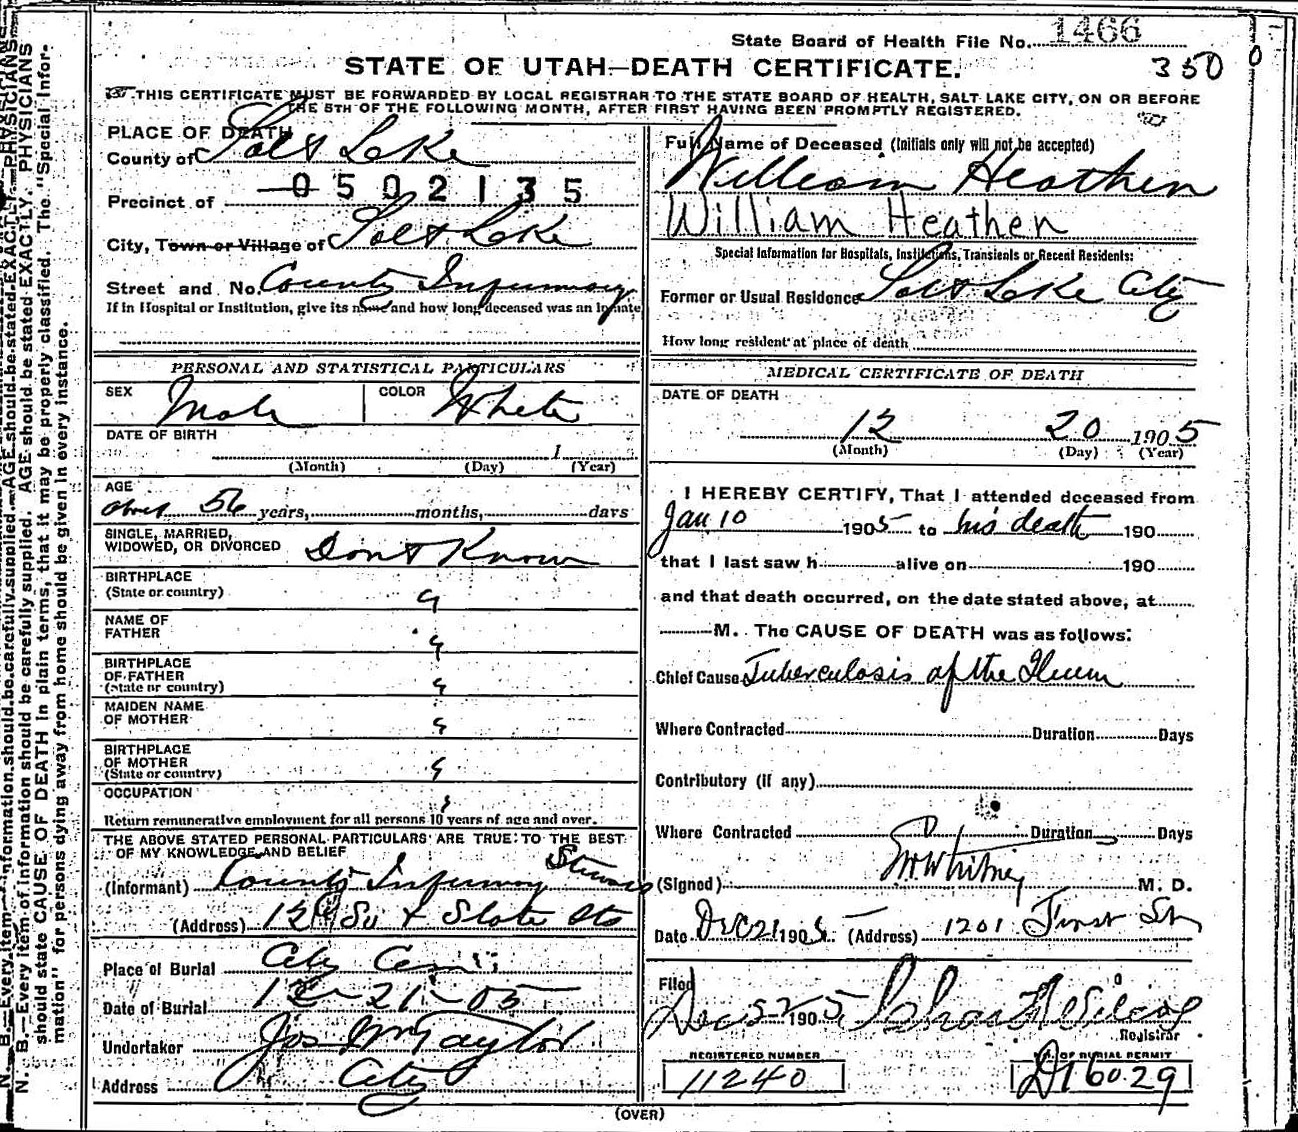 State Board of Health File No. 1466
350
STATE OF UTAH—DEATH CERTIFICATE.
THIS CERTIFICATE MUST BE FORWARDED BY LOCAL REGISTRAR TO THE STATE BOARD OF HEALTH, SALT LAKE CITY, ON OR BEFORE
THE 5TH OF THE FOLLOWING MONTH, AFTER FIRST HAVING BEEN PROMPTLY REGISTERED.
PLACE OF DEATH
County of Salt Lake
0502135
Precinct of
City, Town or Village of Salt Lake
Street and No. County Infirmary
If in Hospital or Institution, give its name and how long deceased was an inmate
PERSONAL AND STATISTICAL PARTICULARS
SEX Male COLOR White
DATE OF BIRTH
1
(Month) (Day) (Year)
AGE
about 56 years, months, days
SINGLE, MARRIED,
WIDOWED, OR DIVORCED Dont Know
BIRTHPLACE
(State or country)
NAME OF
FATHER
BIRTHPLACE
OF FATHER
(State or country)
MAIDEN NAME
OF MOTHER
BIRTHPLACE
OF MOTHER
(State or country)
OCCUPATION
Return remunerative employment for all persons 10 years of age and over.
THE ABOVE STATED PERSONAL PARTICULARS ARE TRUE TO THE BEST
OF MY KNOWLEDGE AND BELIEF
(Informant) County Infirmary Steward
(Address) 12th So & State Sts
Place of Burial City Cem
Date of Burial 12-21-05
Undertaker Jos Wm Taylor
Address City
Full Name of Deceased (Initials only will not be accepted)
William Heathen
William Heathen
Special Information for Hospitals, Institutions, Transients or Recent Residents:
Former or Usual Residence Salt Lake City
How long resident at place of death
MEDICAL CERTIFICATE OF DEATH
DATE OF DEATH
12 20 1905
(Month) (Day) (Year)
I HEREBY CERTIFY, That I attended deceased from
Jan 10 1905 to his death 190
that I last saw h alive on 190
and that death occurred, on the date stated above, at
M. The CAUSE OF DEATH was as follows:
Chief Cause Tuberculosis of the Ileum
Where Contracted Duration Days
Contributory (if any)
Where Contracted Duration Days
(Signed) Whitney M. D.
Date Dec 21 1905 (Address) 1201 First St
Filed
Dec 1905
Registrar
REGISTERED NUMBER
11240
NO. OF BURIAL PERMIT
D16029
(OVER)
N. B.—Every item of information should be carefully supplied. AGE should be stated EXACTLY. PHYSICIANS
should state CAUSE OF DEATH in plain terms, that it may be properly classified. The "Special Infor-
mation" for persons dying away from home should be given in every instance.